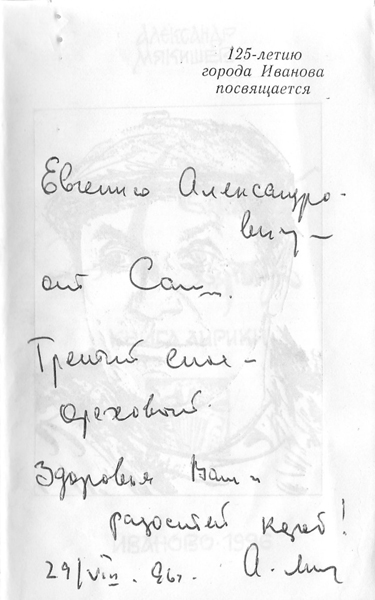 125-летию
города Иванова
посвящается
Евгению Александро-
вичу –
от Саши.
Третий спас –
ореховый.
Здоровья Вам и
радостей
29/VIII. 96г. А.